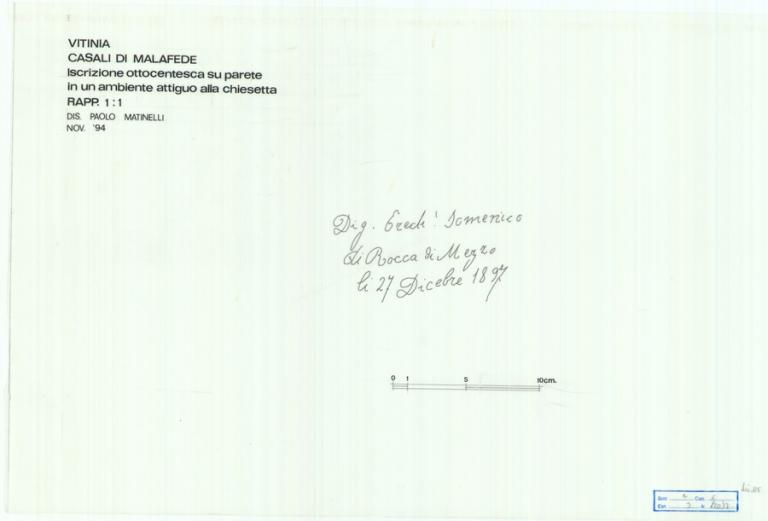 VITINIA
CASALI DI MALAFEDE
Iscrizione ottocentesca su parete
in un ambiente attiguo alla chiesetta
RAPP. 1:1
DIS. PAOLO MATINELLI
NOV. '94
Dig. Domenico
di Rocca di Mezzo
li 27 Dicebre 1897
0 1 5 10cm.